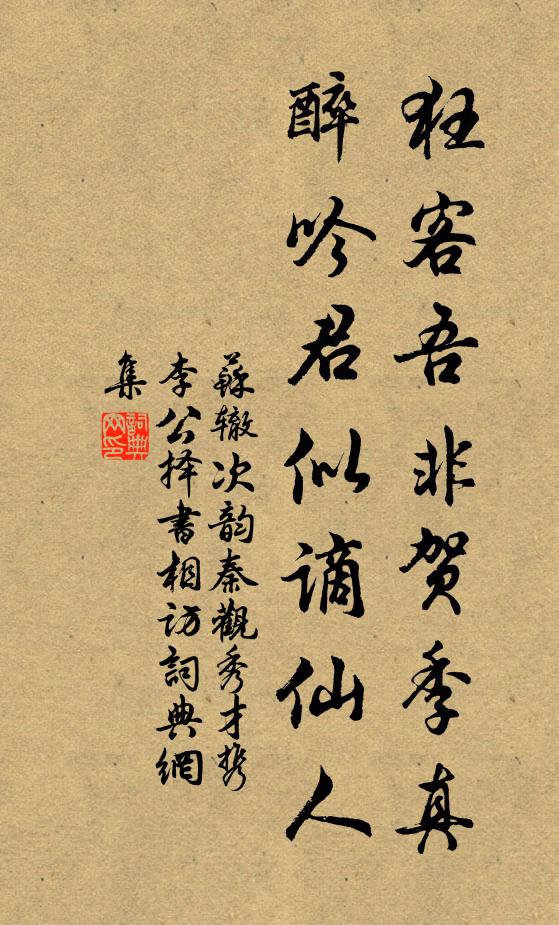 狂客吾非贺季真
醉吟君似谪仙人
蘇辙次韵秦觀秀才携
李公择書相访詞典網
集
詞典網印